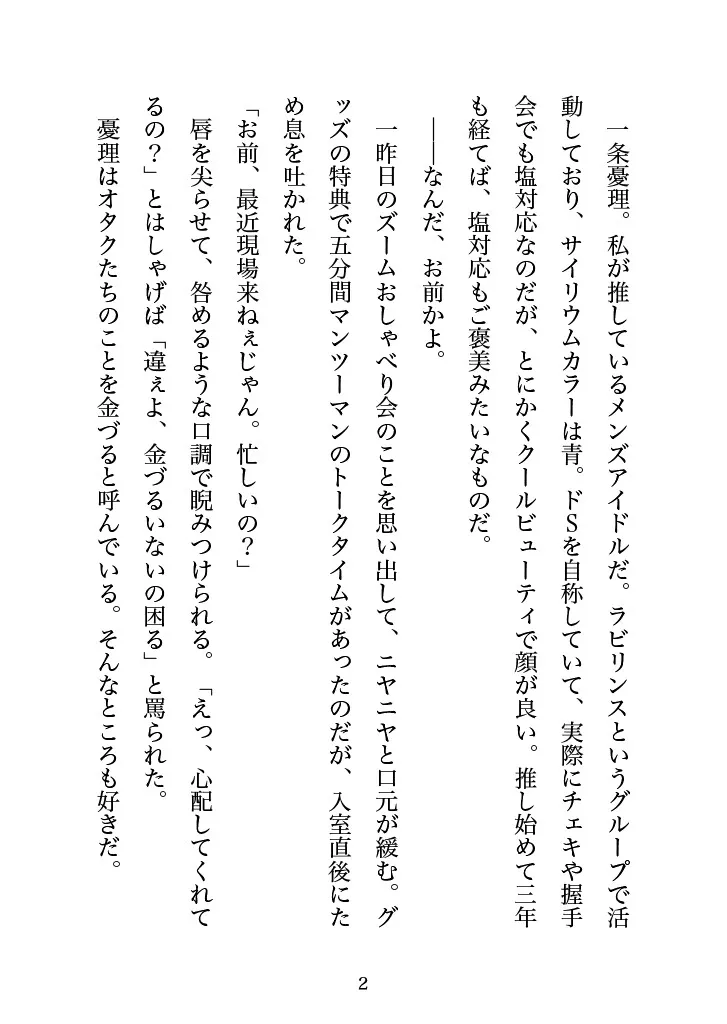 一条憂理。私が推しているメンズアイドルだ。ラビリンスというグループで活
動しており、サイリウムカラーは青。ドSを自称していて、実際にチェキや握手
会でも塩対応なのだが、とにかくクールビューティで顔が良い。推し始めて三年
も経てば、塩対応もご褒美みたいなものだ。
――なんだ、お前かよ。
一昨日のズームおしゃべり会のことを思い出して、ニヤニヤと口元が緩む。グ
ッズの特典で五分間マンツーマンのトークタイムがあったのだが、入室直後にた
め息を吐かれた。
「お前、最近現場来ねぇじゃん。忙しいの？」
唇を尖らせて、咎めるような口調で睨みつけられる。「えっ、心配してくれて
るの？」とはしゃげば「違ぇよ、金づるいないの困る」と罵られた。
憂理はオタクたちのことを金づると呼んでいる。そんなところも好きだ。
2